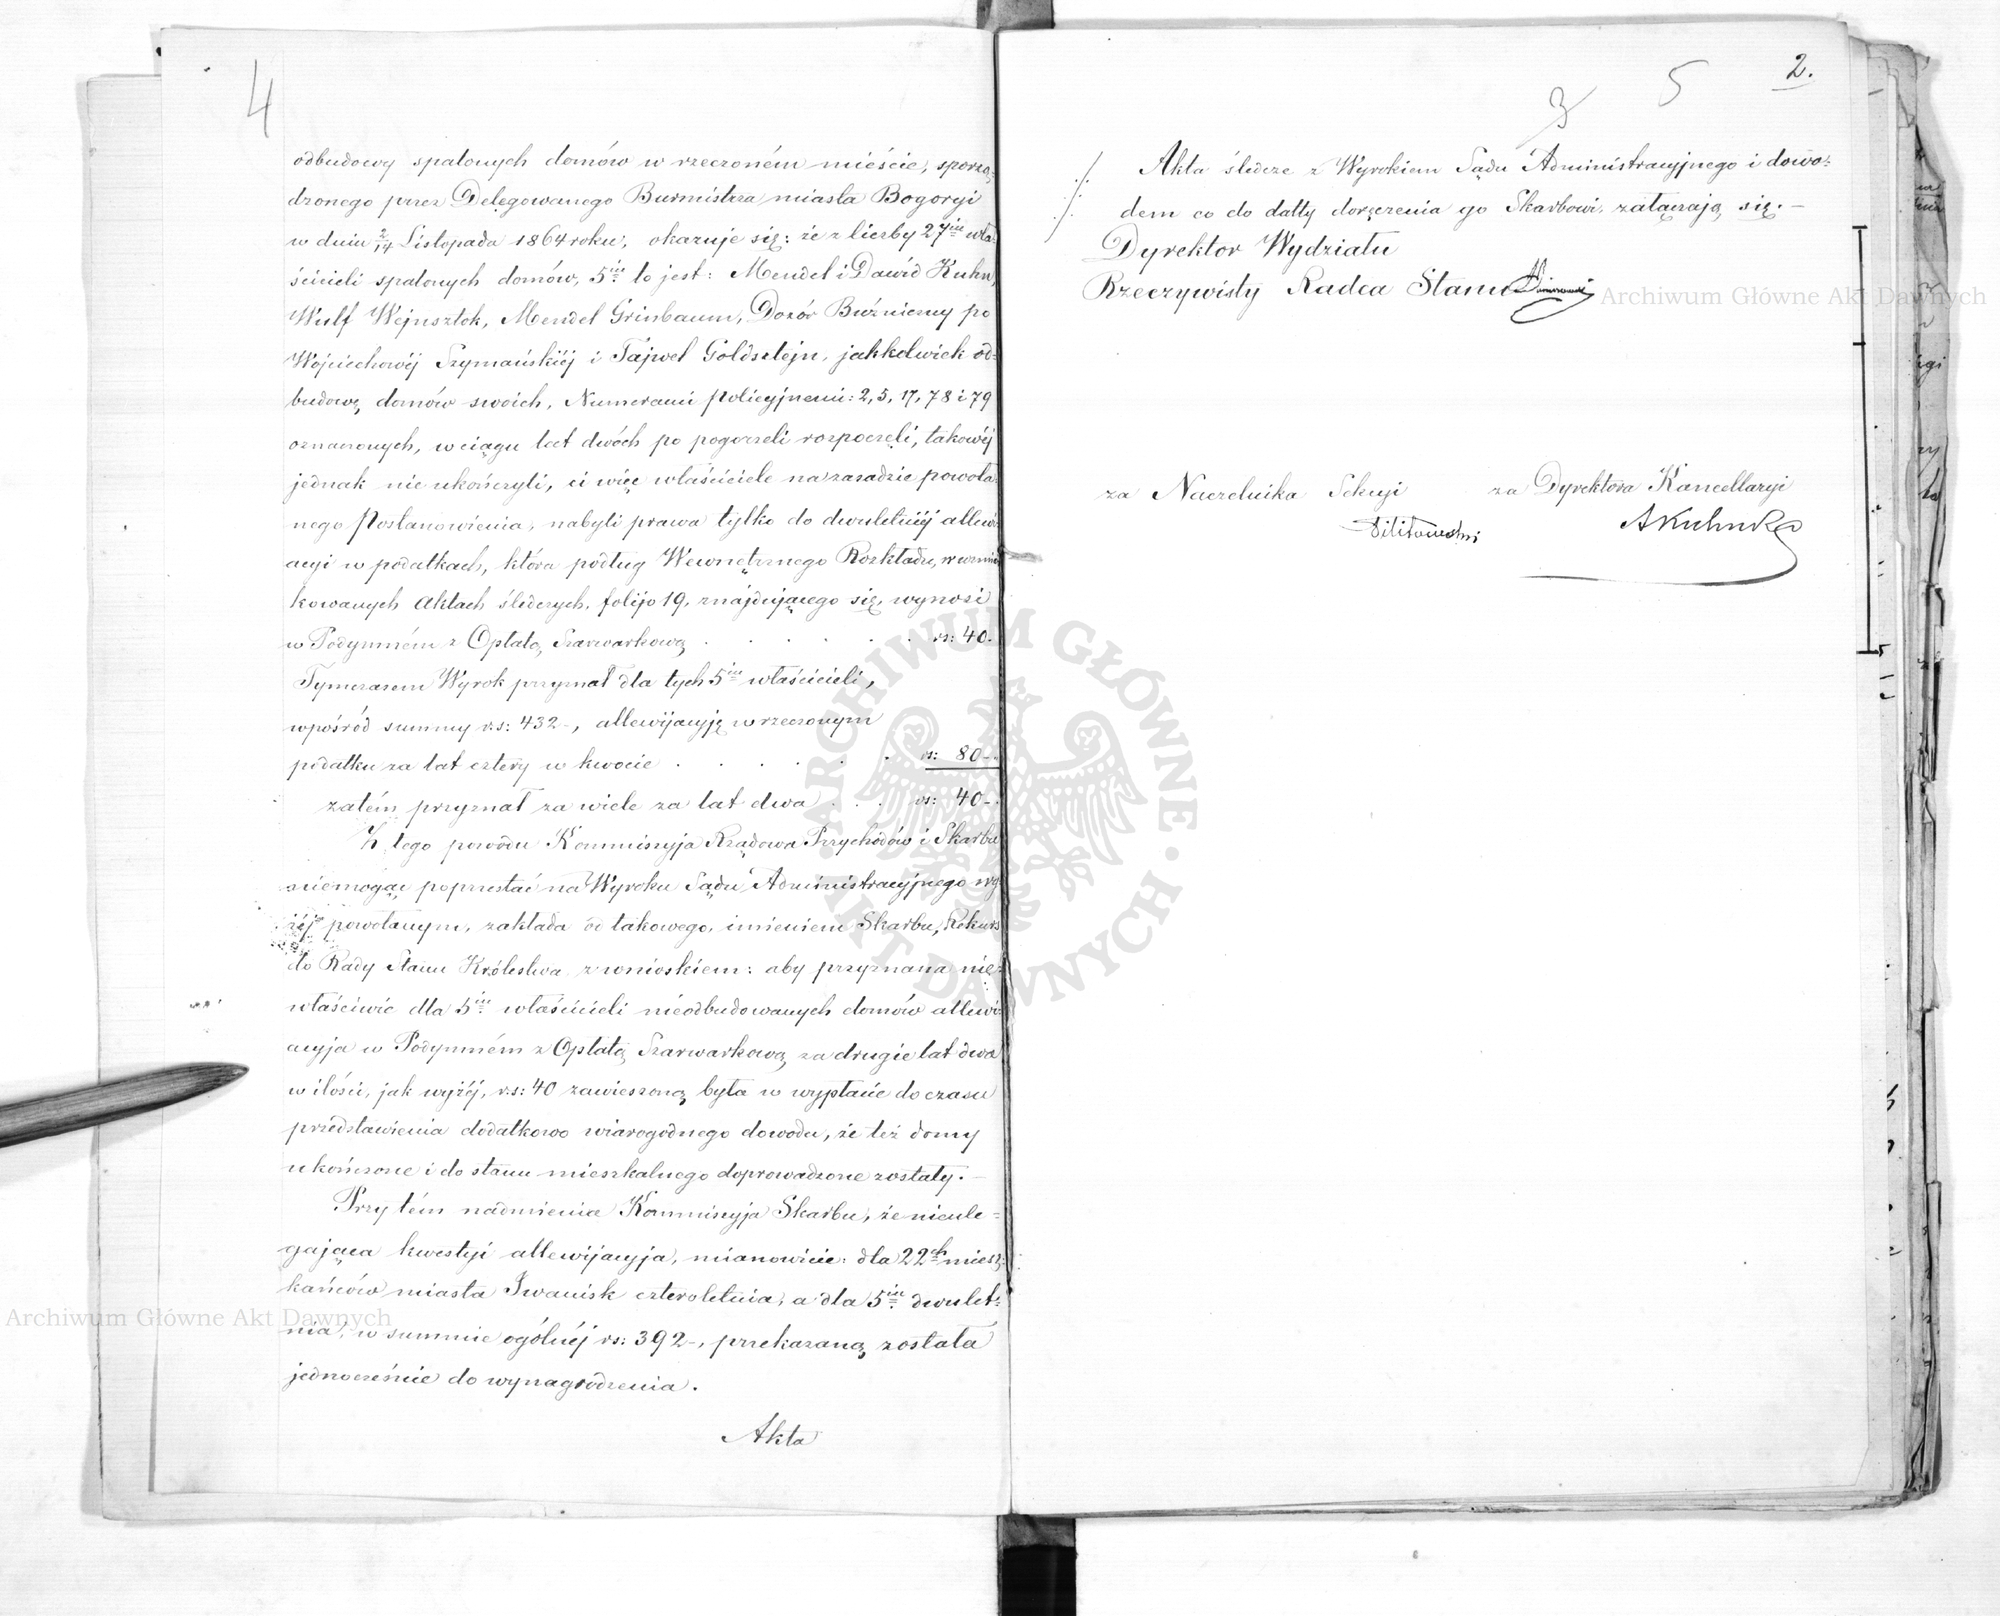 4
odbudowy spalonych domów w rzeczoném mieście, sporzą-
dzonego przez Delegowanego Burmistrza miasta Bogoryi
w dniu 2/14 Listopada 1864 roku, okazuje się: że z liczby 27iu wła-
ścicieli spalonych domów, 5iu to jest: Mendel i Dawid Kuhn,
Wulf Wejnsztok, Mendel Grinbaum, Dozór Bużniczny po
Wojciechowéj Szymańskiéj i Fajwel Goldsztejn, jakkolwiek od-
budowę domów swoich, Numerami policyjnemi: 2, 5, 17, 78 i 79
oznaczonych, w ciągu lat dwóch po pogorzeli rozpoczęli, takowéj
jednak nie ukończyli, ci więc właściciele na zasadzie powoła-
nego Postanowienia, nabyli prawa tylko do dwuletniéj allewi-
acyi w podatkach, która podług Wewnętrznego Rozkładu, w wzmian-
kowanych Aktach śledczych, folijo 19, znajdującego się, wynosi
w Podymném z Opłatą Szarwarkową . . . . . . rs: 40.
Tymczasem Wyrok przyznał dla tych 5iu właścicieli,
wpośród summy rs: 432-, allewijacyję w rzeczonym
podatku za lat cztery w kwocie . . . . . . rs: 80-.
zatém przyznał za wiele za lat dwa . . . rs: 40-.
Z tego powodu Kommissyja Rządowa Przychodów i Skarbu
niemogąc poprzestać na Wyroku Sądu Administracyjnego wy-
żéj powołanym, zakłada od takowego, imieniem Skarbu, Rekurs
do Rady Stanu Królestwa z wnioskiem: aby przyznana nie-
właściwie dla 5iu właścicieli nieodbudowanych domów allewi-
acyja w Podymném z Opłatą Szarwarkową za drugie lat dwa
w ilości, jak wyżéj, rs: 40 zawieszoną była w wypłacie do czasu
przedstawienia dodatkowo wiarogodnego dowodu, że też domy
ukończone i do stanu mieszkalnego doprowadzone zostały. -
Przytém nadmienia Kommissyja Skarbu, że nieule-
gająca kwestyi allewijacyja, mianowicie: dla 22ch miesz-
kańców miasta Iwanisk czteroletnia, a dla 5iu dwulet-
nia, w summie ogólnéj rs: 392-, przekazaną została
jednocześnie do wynagrodzenia.
Akta
2.
3 5
Akta śledcze z Wyrokiem Sądu Administracyjnego i dowo-
dem co do datty doręczenia go Skarbowi, załączają się. -
Dyrektor Wydziału
Rzeczywisty Radca Stanu
za Naczelnika Sekcyi za Dyrektora Kancellaryi
Archiwum Główne Akt Dawnych
Archiwum Główne Akt Dawnych
ARCHIWUM GŁÓWNE AKT DAWNYCH